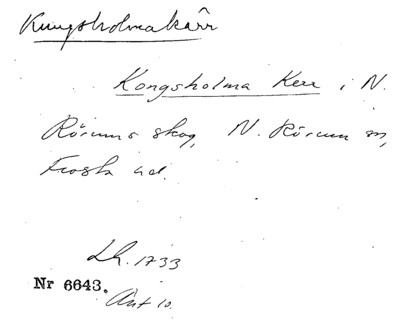 Kungsholmakärr
Kongsholma Kerr i N.
Rörums skog, N. Rörum sn,
Frosta hd.
Lh. 1733
Nr 6643.
Ant 10.